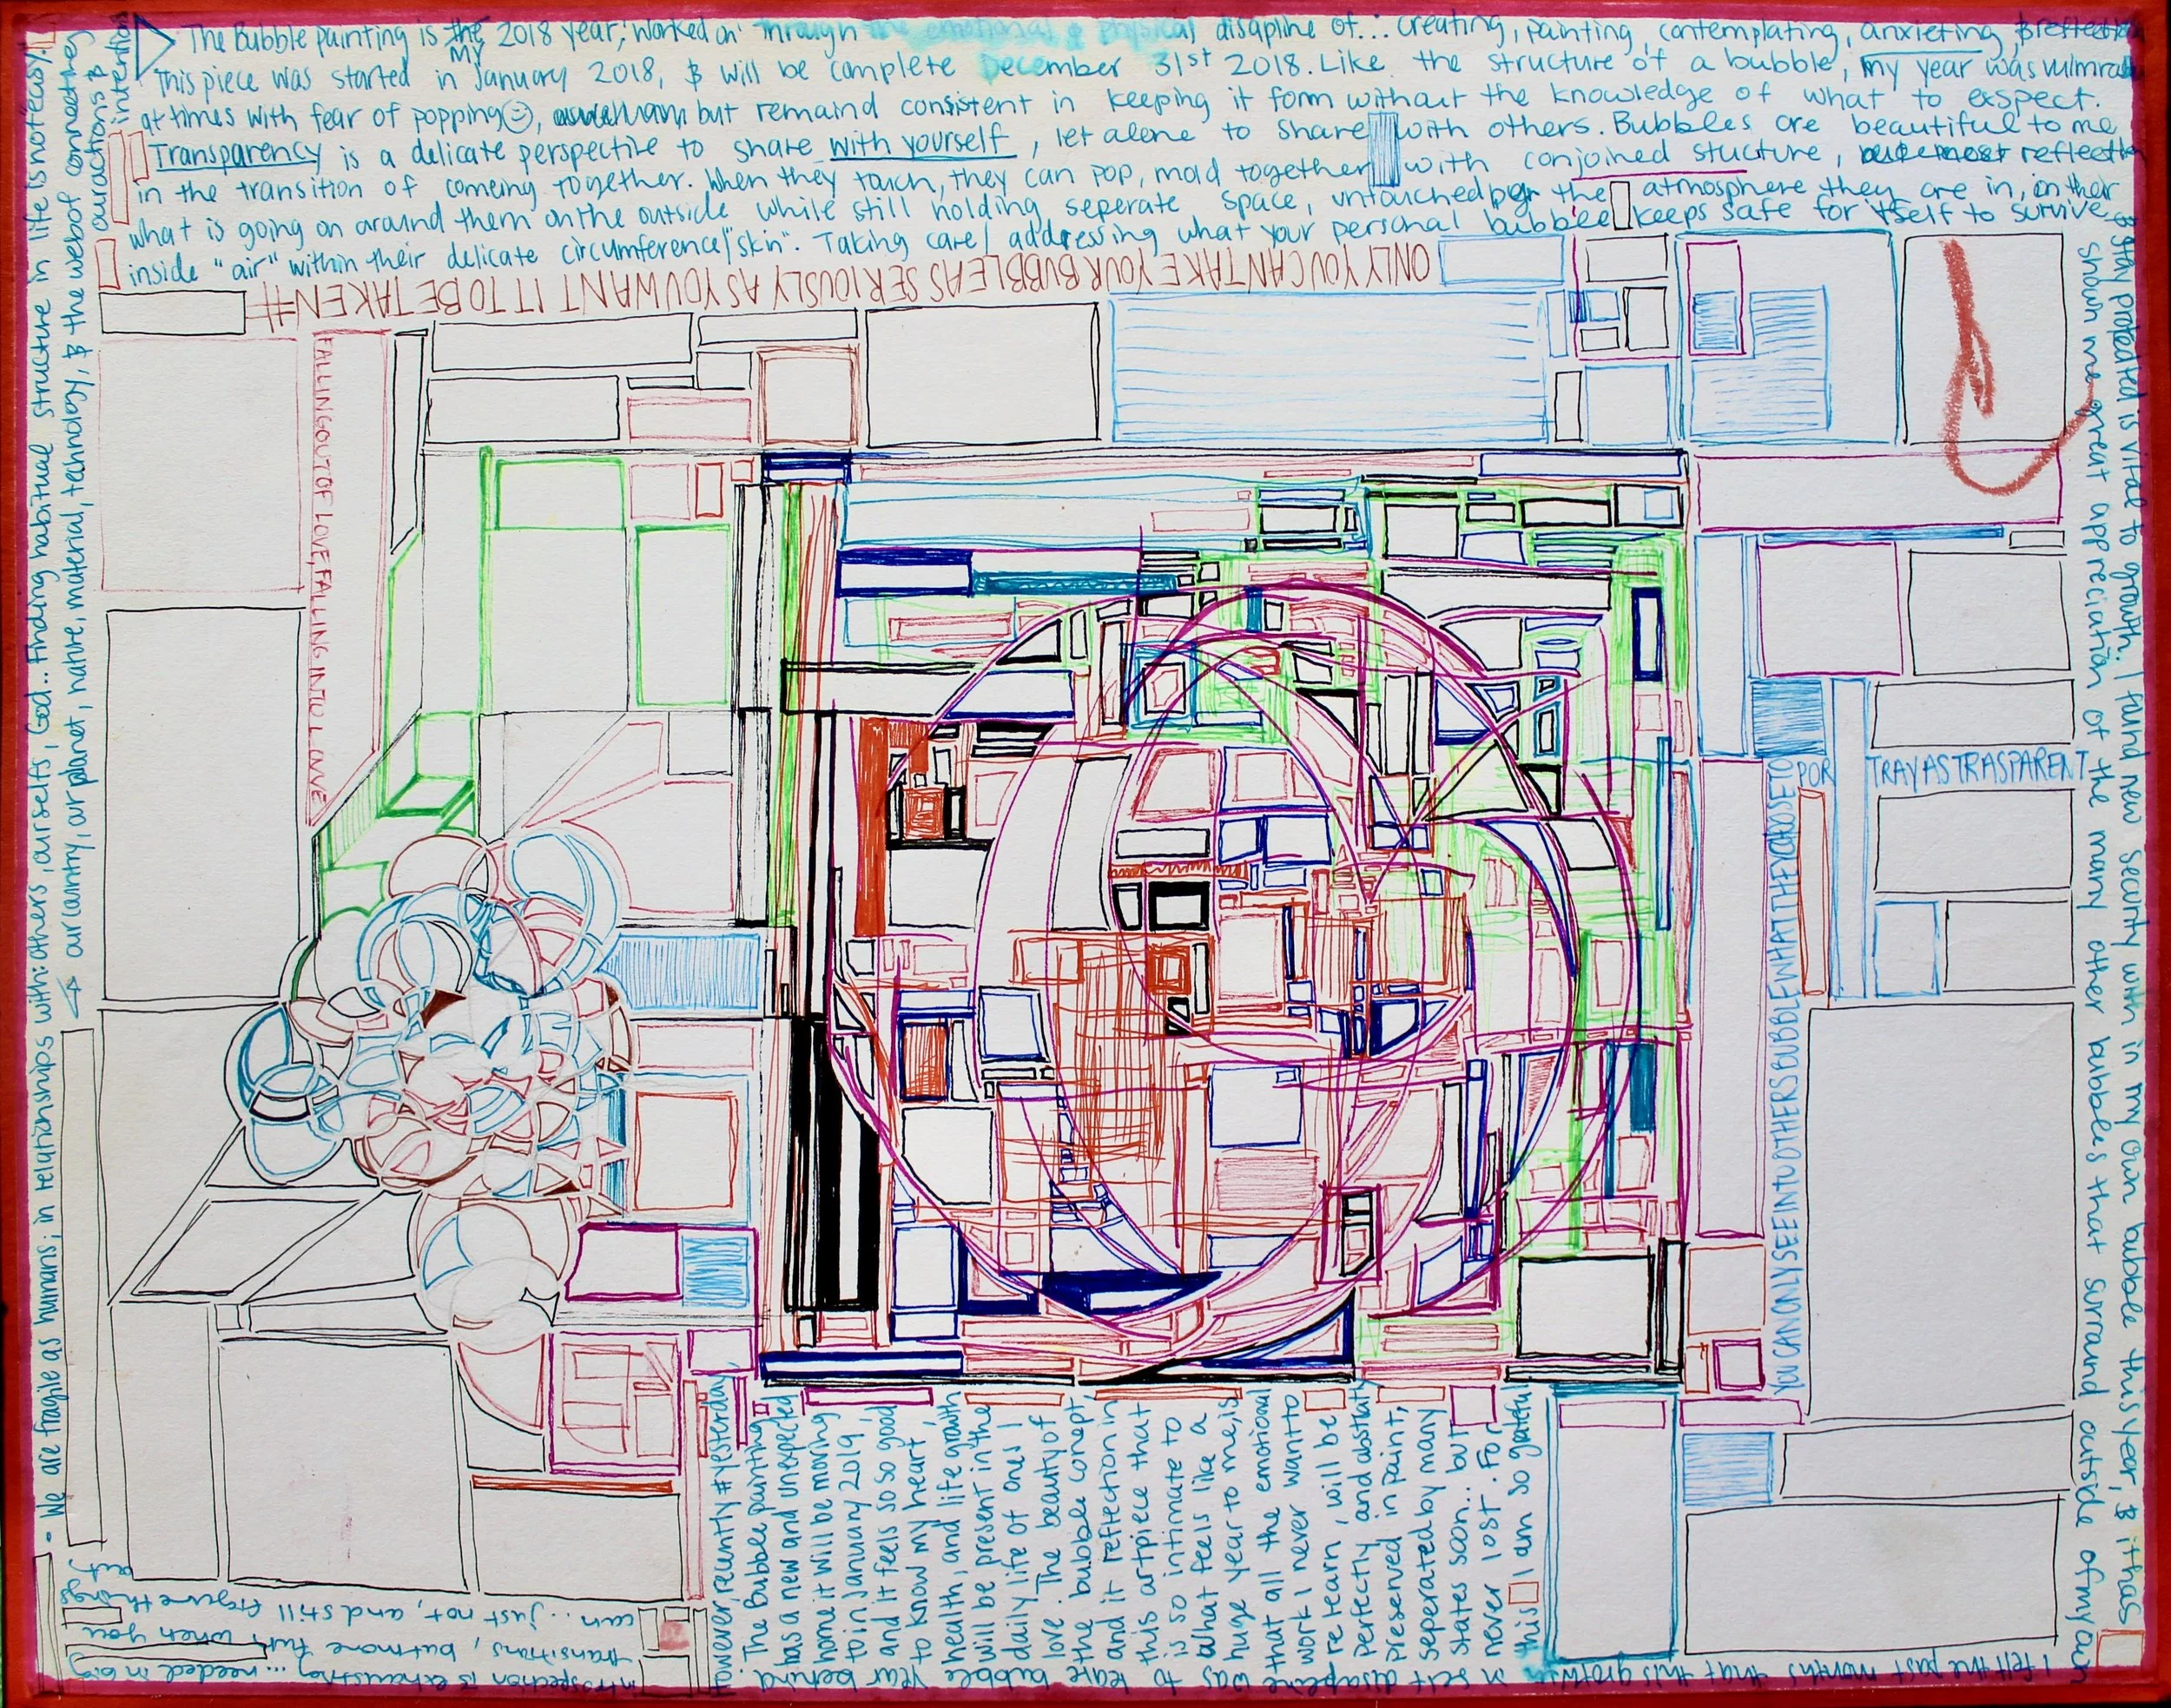 The Bubble painting is the my 2018 year; worked on through the emotional & physical disapline of... creating, painting, contemplating, anxieting, & reflecting
This piece was started in January 2018, & will be complete December 31st 2018. Like the structure of a bubble, my year was vulnrable
at times with fear of popping, but remaind consistent in keeping it form without the knowledge of what to exspect.
Transparency is a delicate perspective to share with yourself, let alone to share with others. Bubbles are beautiful to me
in the transition of comeing together. When they touch, they can pop, mold together with conjoined stucture, reflecting
what is going on around them on the outside while still holding seperate space, untouched the atmosphere they are in, on their
inside "air" within their delicate circumference/"skin". Taking care/ addressing what your personal bubble keeps safe for itself to survive
& stay protected is vital to growth. I fund new security with in my own bubble this year, & it has
shown me great appreciation of the many other bubbles that surround outside of my own
I felt the past months that this growth
in self disapline was
to leave bubble
year behind
However, recently #yesterday,
The Bubble painting
has a new and unexpected
home it will be moving
to in January 2019,
and it feels so so good
to know my heart,
health, and life growth
will be present in the
daily life of ones I
love. The beauty of
the bubble conept,
and it reflection in
this artpiece that
is so intimate to
what feels like a
huge year to me, is
that all the emotional
work I never want to
re learn, will be
perfectly and abstaktly
preserved in paint,
seperated by many
states soon... but
never lost. For
this I am so grateful
introspection is exhausting ... needed in big
transitions, but more fun when you
can... just not, and still figure things
out
- We are fragile as humans; in relationships with: others, ourselfs, God.. Finding habitual structure in life is not easy!
our country, our planet, nature, material, technology, & the web of connecting
our actions &
intentions
#ONLY YOU CAN TAKE YOUR BUBBLE AS SERIOUSLY AS YOU WANT IT TO BE TAKEN#
FALLING OUT OF LOVE, FALLING INTO LOVE
YOU CAN ONLY SEE INTO OTHERS BUBBLE WHAT THEY CHOSE TO
PORTRAY AS TRASPARENT